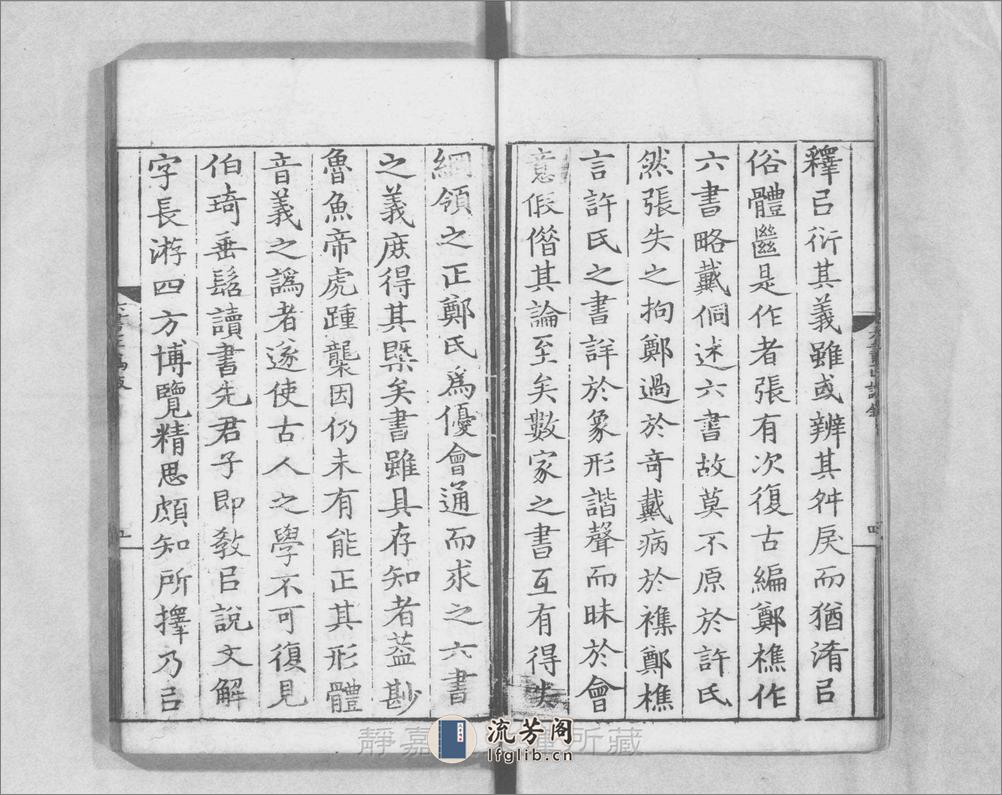 釋㠯衍其義雖或辨其舛戾而猶淆㠯
俗體繇是作者張有次復古編鄭樵作
六書略戴侗述六書故莫不原於許氏
然張失之拘鄭過於奇戴病於襍鄭樵
言許氏之書詳於象形諧聲而昧於會
意假借其論至矣數家之書互有得失
綱領之正鄭氏爲優會通而求之六書
之義庶得其槩矣書雖具存知者葢尠
魯魚帝虎踵襲因仍未有能正其形體
音義之譌者遂使古人之學不可復見
伯琦垂髫讀書先君子即敎㠯說文解
字長游四方博覽精思頗知所擇乃㠯
五
靜嘉堂文庫所藏
流芳阁
lfglib.cn